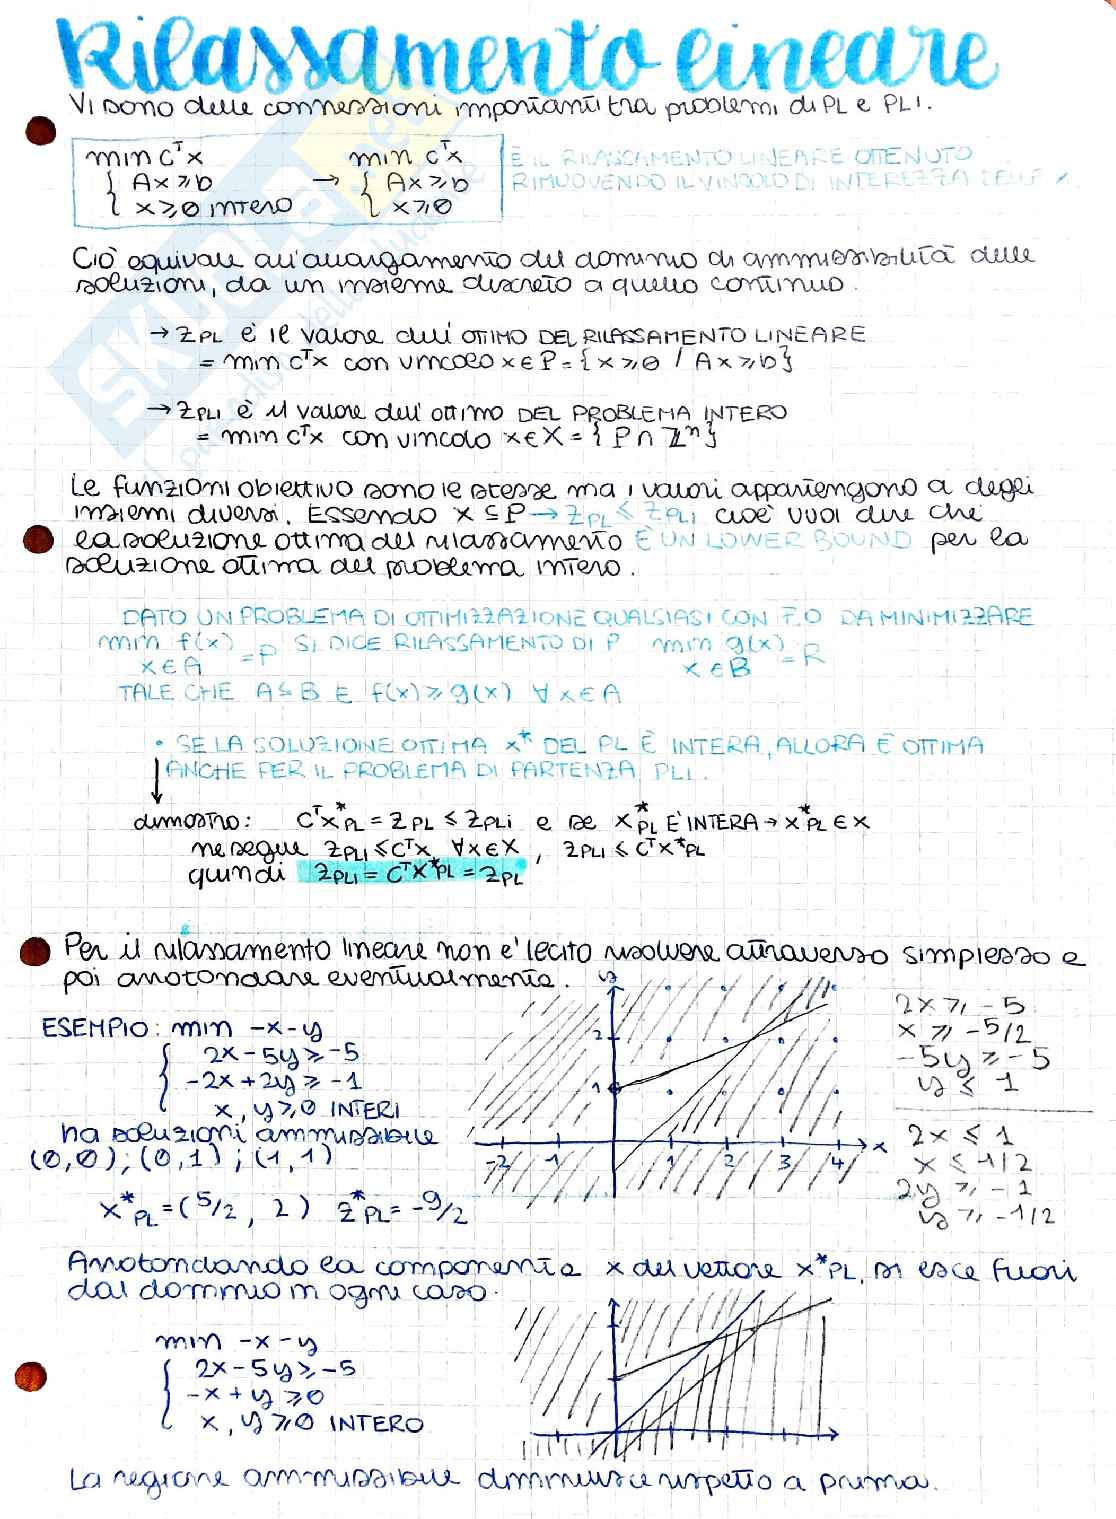 Rilassamento lineare
Vi sono delle connessioni importanti tra problemi di PL e PLI.
min cᵀx → min cᵀx
{ Ax ≥ b { Ax ≥ b
{ x ≥ 0 intero { x ≥ 0
È IL RILASSAMENTO LINEARE OTTENUTO
RIMUOVENDO IL VINCOLO DI INTEREZZA DELLE
Ciò equivale all'allargamento del dominio di ammissibilità delle
soluzioni, da un insieme discreto a quello continuo.
→ Z_PL è il valore dell'OTTIMO DEL RILASSAMENTO LINEARE
= min cᵀx con vincolo x ∈ P = { x ≥ 0 / Ax ≥ b }
→ Z_PLI è il valore dell'ottimo DEL PROBLEMA INTERO
= min cᵀx con vincolo x ∈ X = { P ∩ ℤⁿ }
Le funzioni obiettivo sono le stesse ma i valori appartengono a degli
insiemi diversi. Essendo X ⊆ P → Z_PL ≤ Z_PLI cioè vuol dire che
la soluzione ottima del rilassamento È UN LOWER BOUND per la
soluzione ottima del problema intero.
DATO UN PROBLEMA DI OTTIMIZZAZIONE QUALSIASI CON F.O DA MINIMIZZARE
min f(x) = P SI DICE RILASSAMENTO DI P min g(x) = R
x ∈ A x ∈ B
TALE CHE A ⊆ B E f(x) ≥ g(x) ∀ x ∈ A
• SE LA SOLUZIONE OTTIMA x* DEL PL È INTERA, ALLORA È OTTIMA
ANCHE PER IL PROBLEMA DI PARTENZA PLI.
dimostro: cᵀx*_PL = Z_PL ≤ Z_PLI e se x*_PL È INTERA → x*_PL ∈ X
ne segue Z_PLI ≤ cᵀx ∀x ∈ X , Z_PLI ≤ cᵀx*_PL
quindi Z_PLI = cᵀx*_PL = Z_PL
Per il rilassamento lineare non e' lecito risolvere attraverso simplesso e
poi arrotondare eventualmente.
ESEMPIO: min -x-y
{ 2x-5y ≥ -5
{ -2x+2y ≥ -1
x, y ≥ 0 INTERI
ha soluzioni ammissibile
(0,0); (0,1); (1,1)
x*_PL = (5/2, 2) z*_PL = -9/2
y
2
1
-2 -1 1 2 3 4 x
2x ≥ -5
x ≥ -5/2
-5y ≥ -5
y ≤ 1
2x ≤ 1
x ≤ 1/2
2y ≥ -1
y ≥ -1/2
Arrotondando la componente x del vettore x*_PL, si esce fuori
dal dominio in ogni caso.
min -x-y
{ 2x-5y ≥ -5
{ -x+y ≥ 0
{ x, y ≥ 0 INTERO
La regione ammissibile diminuisce rispetto a prima.